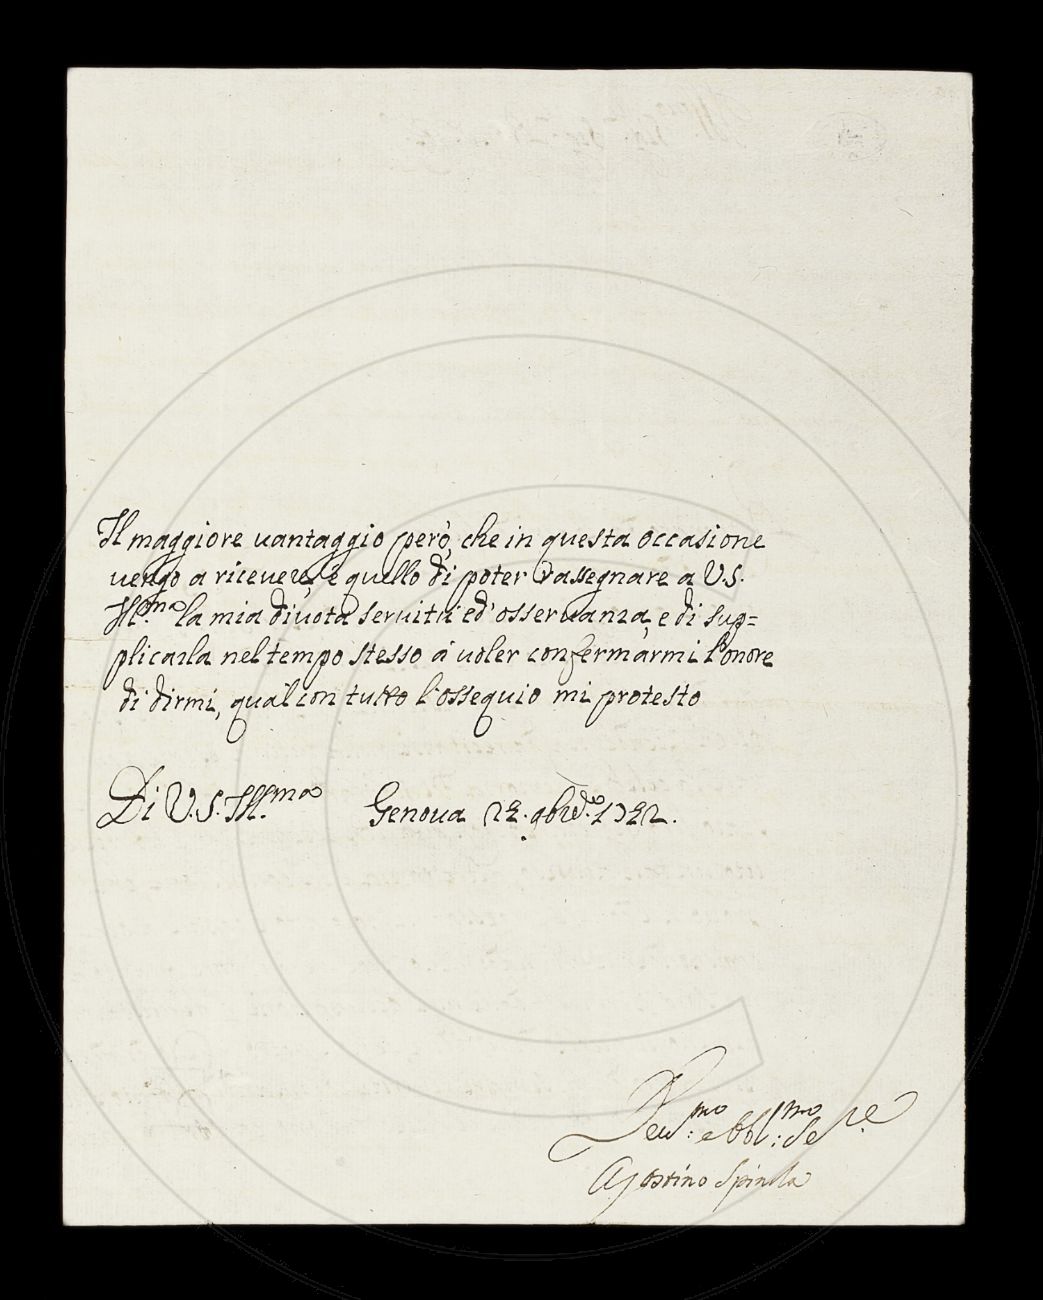 Il maggiore vantaggio però, che in questa occasione
vengo a ricevere, è quello di poter rassegnare a V.S.
Ill.ma la mia divota servitù ed'osservanza, e di sup=
plicarla nel tempo stesso à voler confermarmi l'onore
di dirmi, qual con tutto l'ossequio mi protesto
Di V.S. Ill.ma Genova 22. 9bre.
Dev.mo e obbl.mo Se.re
Agostino Spinola